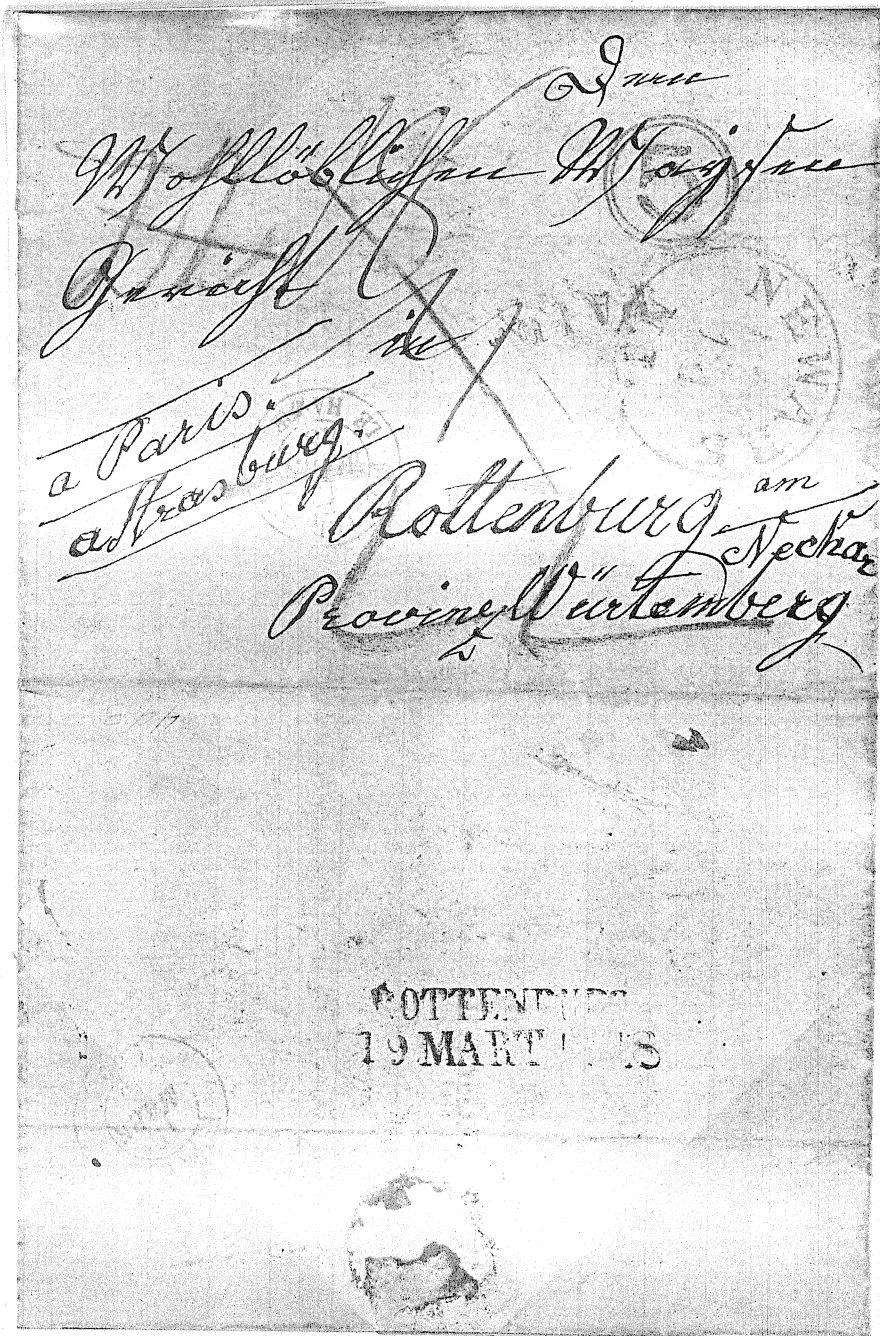 Dem
Wohllöblichen Waysen
Gericht
in
a Paris.
a Strasburg.
Rottenburg am
Neckar
Provinz Würtemberg
NEWARK
LE HAV
ROTTENBURG
19 MART